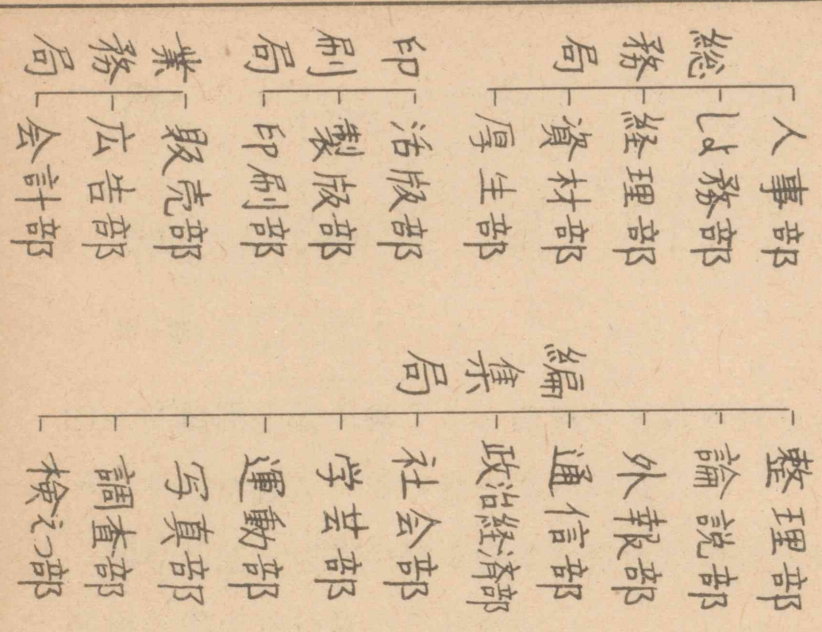 総務局
人事部
しよ務部
経理部
資材部
厚生部
印刷局
活版部
製版部
印刷部
業務局
販売部
広告部
会計部
編集局
整理部
論説部
外報部
通信部
政治経済部
社会部
学芸部
運動部
写真部
調査部
検えつ部